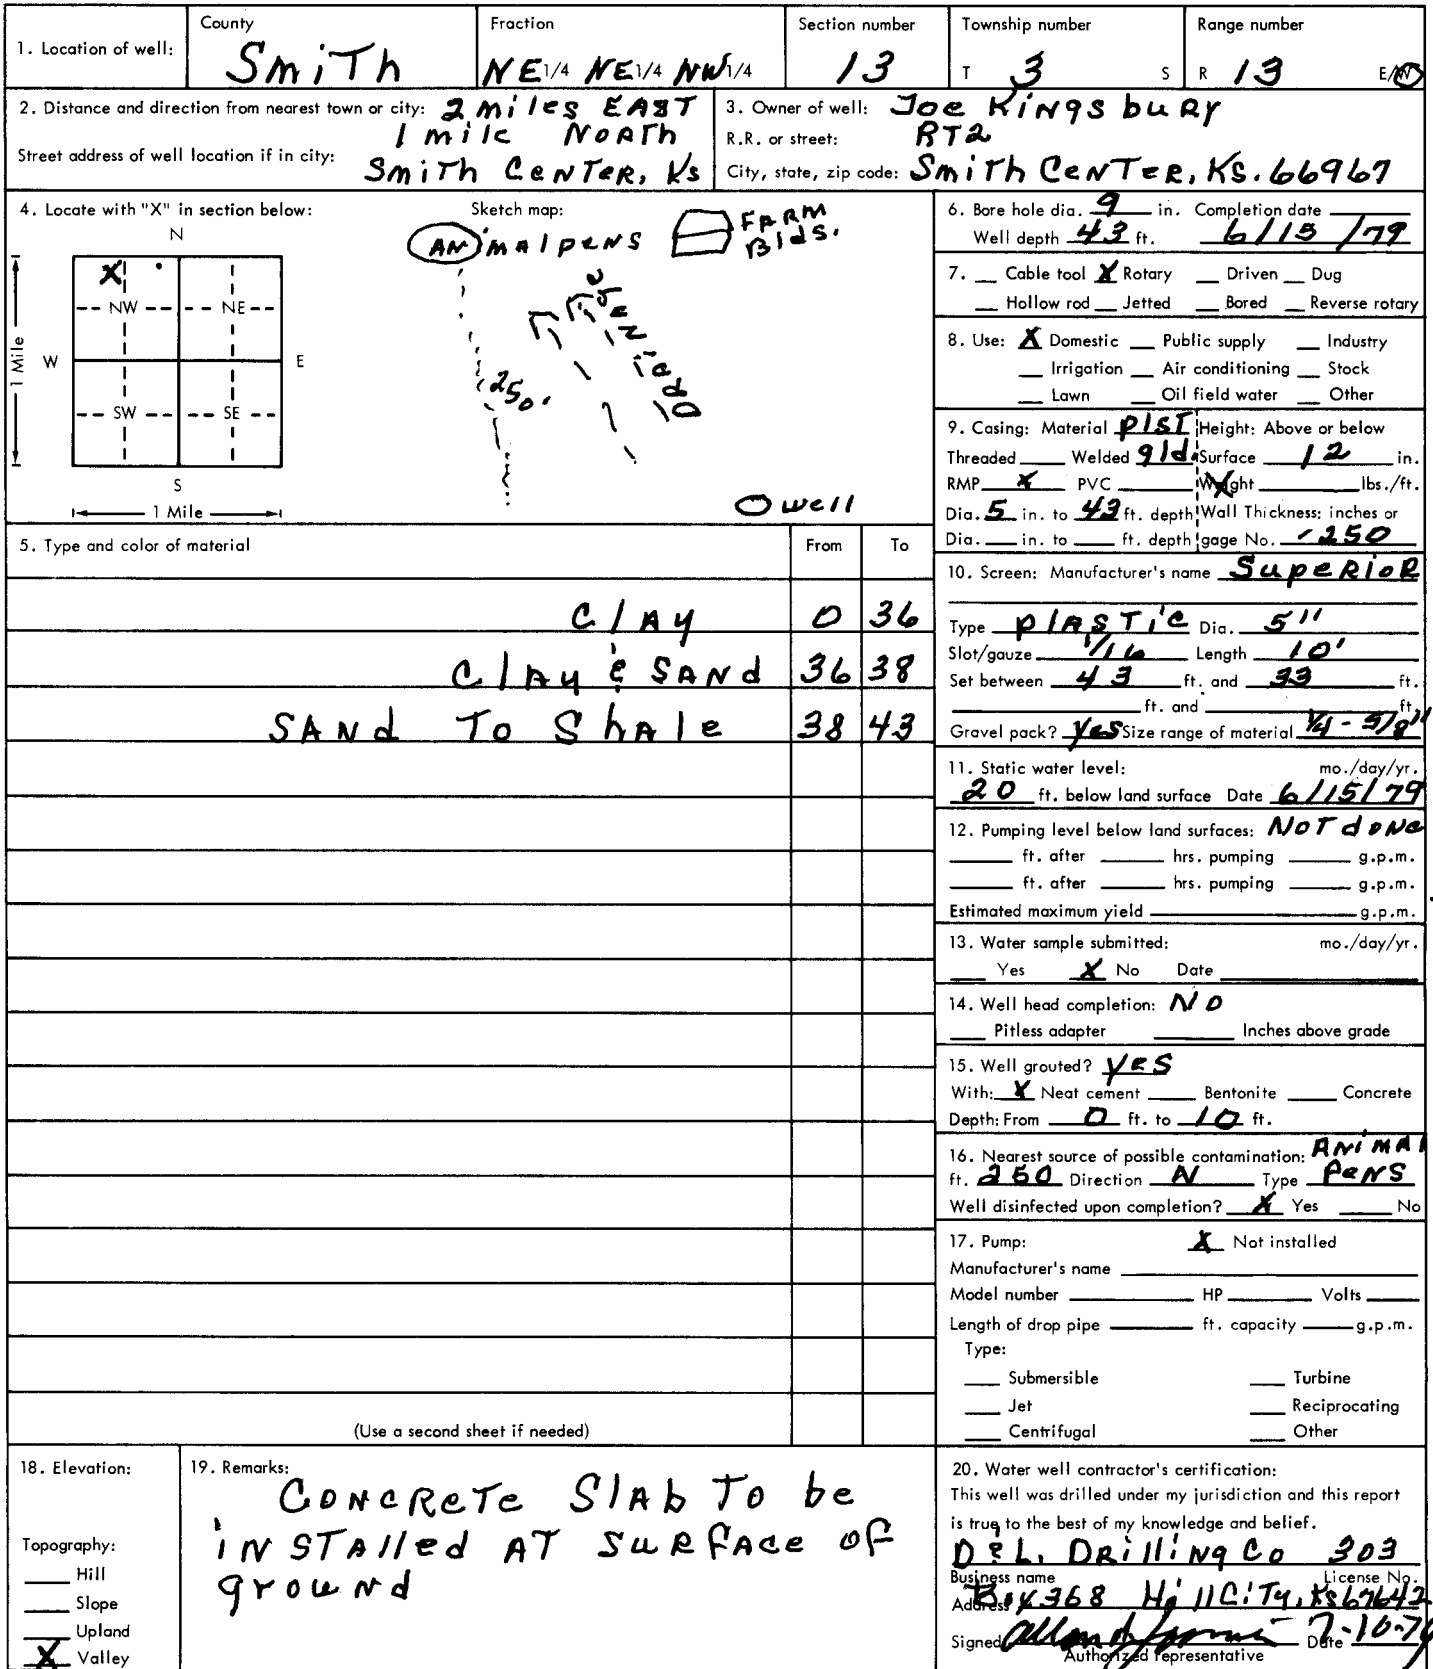 1. Location of well: County Smith Fraction NE 1/4 NE 1/4 NW 1/4 Section number 13 Township number T 3 S Range number R 13 E/W
2. Distance and direction from nearest town or city: 2 miles EAST
1 mile NORTH
Street address of well location if in city: Smith Center, Ks
3. Owner of well: Joe Kingsbury
R.R. or street: RT2
City, state, zip code: Smith Center, KS. 66967
4. Locate with "X" in section below:
N
X
NW NE
W E
SW SE
S
1 Mile
1 Mile
Sketch map:
Animal pens FARM
Blds.
250'
O well
5. Type and color of material From To
Clay 0 36
Clay & Sand 36 38
Sand to Shale 38 43
(Use a second sheet if needed)
6. Bore hole dia. 9 in. Completion date
Well depth 43 ft. 6/15/79
7. Cable tool X Rotary Driven Dug
Hollow rod Jetted Bored Reverse rotary
8. Use: X Domestic Public supply Industry
Irrigation Air conditioning Stock
Lawn Oil field water Other
9. Casing: Material plst Height: Above or below
Threaded Welded gld. Surface 12 in.
RMP X PVC Weight lbs./ft.
Dia. 5 in. to 43 ft. depth Wall Thickness: inches or
Dia. in. to ft. depth gage No. .250
10. Screen: Manufacturer's name Superior
Type plastic Dia. 5"
Slot/gauze 1/16 Length 10'
Set between 43 ft. and 33 ft.
ft. and ft.
Gravel pack? yes Size range of material 1/4 - 5/8"
11. Static water level: mo./day/yr.
20 ft. below land surface Date 6/15/79
12. Pumping level below land surfaces: Not done
ft. after hrs. pumping g.p.m.
ft. after hrs. pumping g.p.m.
Estimated maximum yield g.p.m.
13. Water sample submitted: mo./day/yr.
Yes X No Date
14. Well head completion: No
Pitless adapter Inches above grade
15. Well grouted? yes
With: X Neat cement Bentonite Concrete
Depth: From 0 ft. to 10 ft.
16. Nearest source of possible contamination: Animal
ft. 250 Direction N Type Pens
Well disinfected upon completion? X Yes No
17. Pump: X Not installed
Manufacturer's name
Model number HP Volts
Length of drop pipe ft. capacity g.p.m.
Type:
Submersible Turbine
Jet Reciprocating
Centrifugal Other
18. Elevation:
Topography:
Hill
Slope
Upland
X Valley
19. Remarks:
Concrete Slab to be
installed at surface of
ground
20. Water well contractor's certification:
This well was drilled under my jurisdiction and this report
is true to the best of my knowledge and belief.
D & L. Drilling Co 303
Business name License No.
Address Box 368 Hill City, Ks 67642
Signed Date
Authorized representative